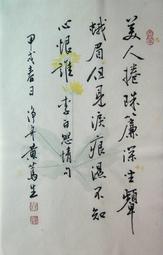 美人捲珠簾深坐顰
蛾眉但見淚痕濕不知
心恨誰 李白思情句
甲戌春日 淨年黃萬生